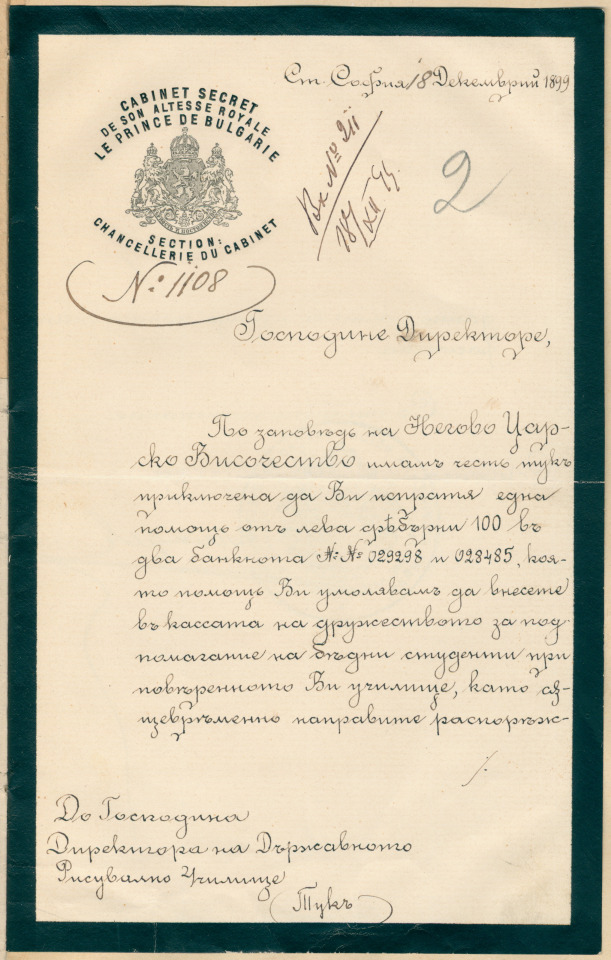 Ст. София 18 Декемврий 1899
CABINET SECRET
DE SON ALTESSE ROYALE
LE PRINCE DE BULGARIE
SECTION:
CHANCELLERIE DU CABINET
№: 1108
Вх №
2
Господине Директоре,
По заповѣдь на Негово Цар-
ско Височество имамъ честь тукъ
приключена да Ви испратя една
помощь отъ лева срѣбърни 100 въ
два банкнота №№ 029298 и 028485, коя-
то помощь Ви умолявамъ да внесете
въ кассата на дружеството за под-
помагание на бѣдни студенти при
повѣренното Ви училище, като
щеврѣменно направите распорѣж-
./.
До Господина
Директора на Държавното
Рисувално Училище
(Тукъ)